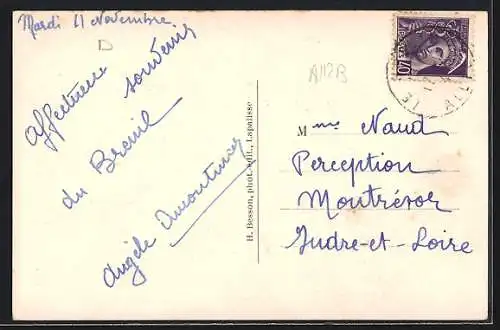 Mardi 11 Novembre
D
Affectueux
souvenir
du Breuil
Angèle
A112B
H. Besson, phot. édit., Lapalisse
Mme Naud
Perception
Montrésor
Indre-et-Loire